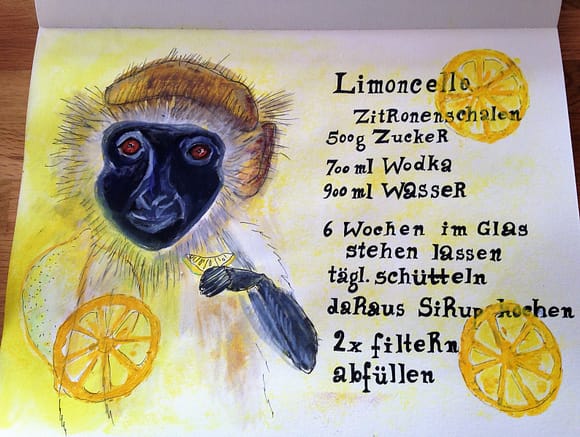 Limoncello
Zitronenschalen
500g Zucker
700 ml Wodka
900 ml Wasser
6 Wochen im Glas
stehen lassen
tägl. schütteln
daraus Sirup kochen
2x filtern
abfüllen